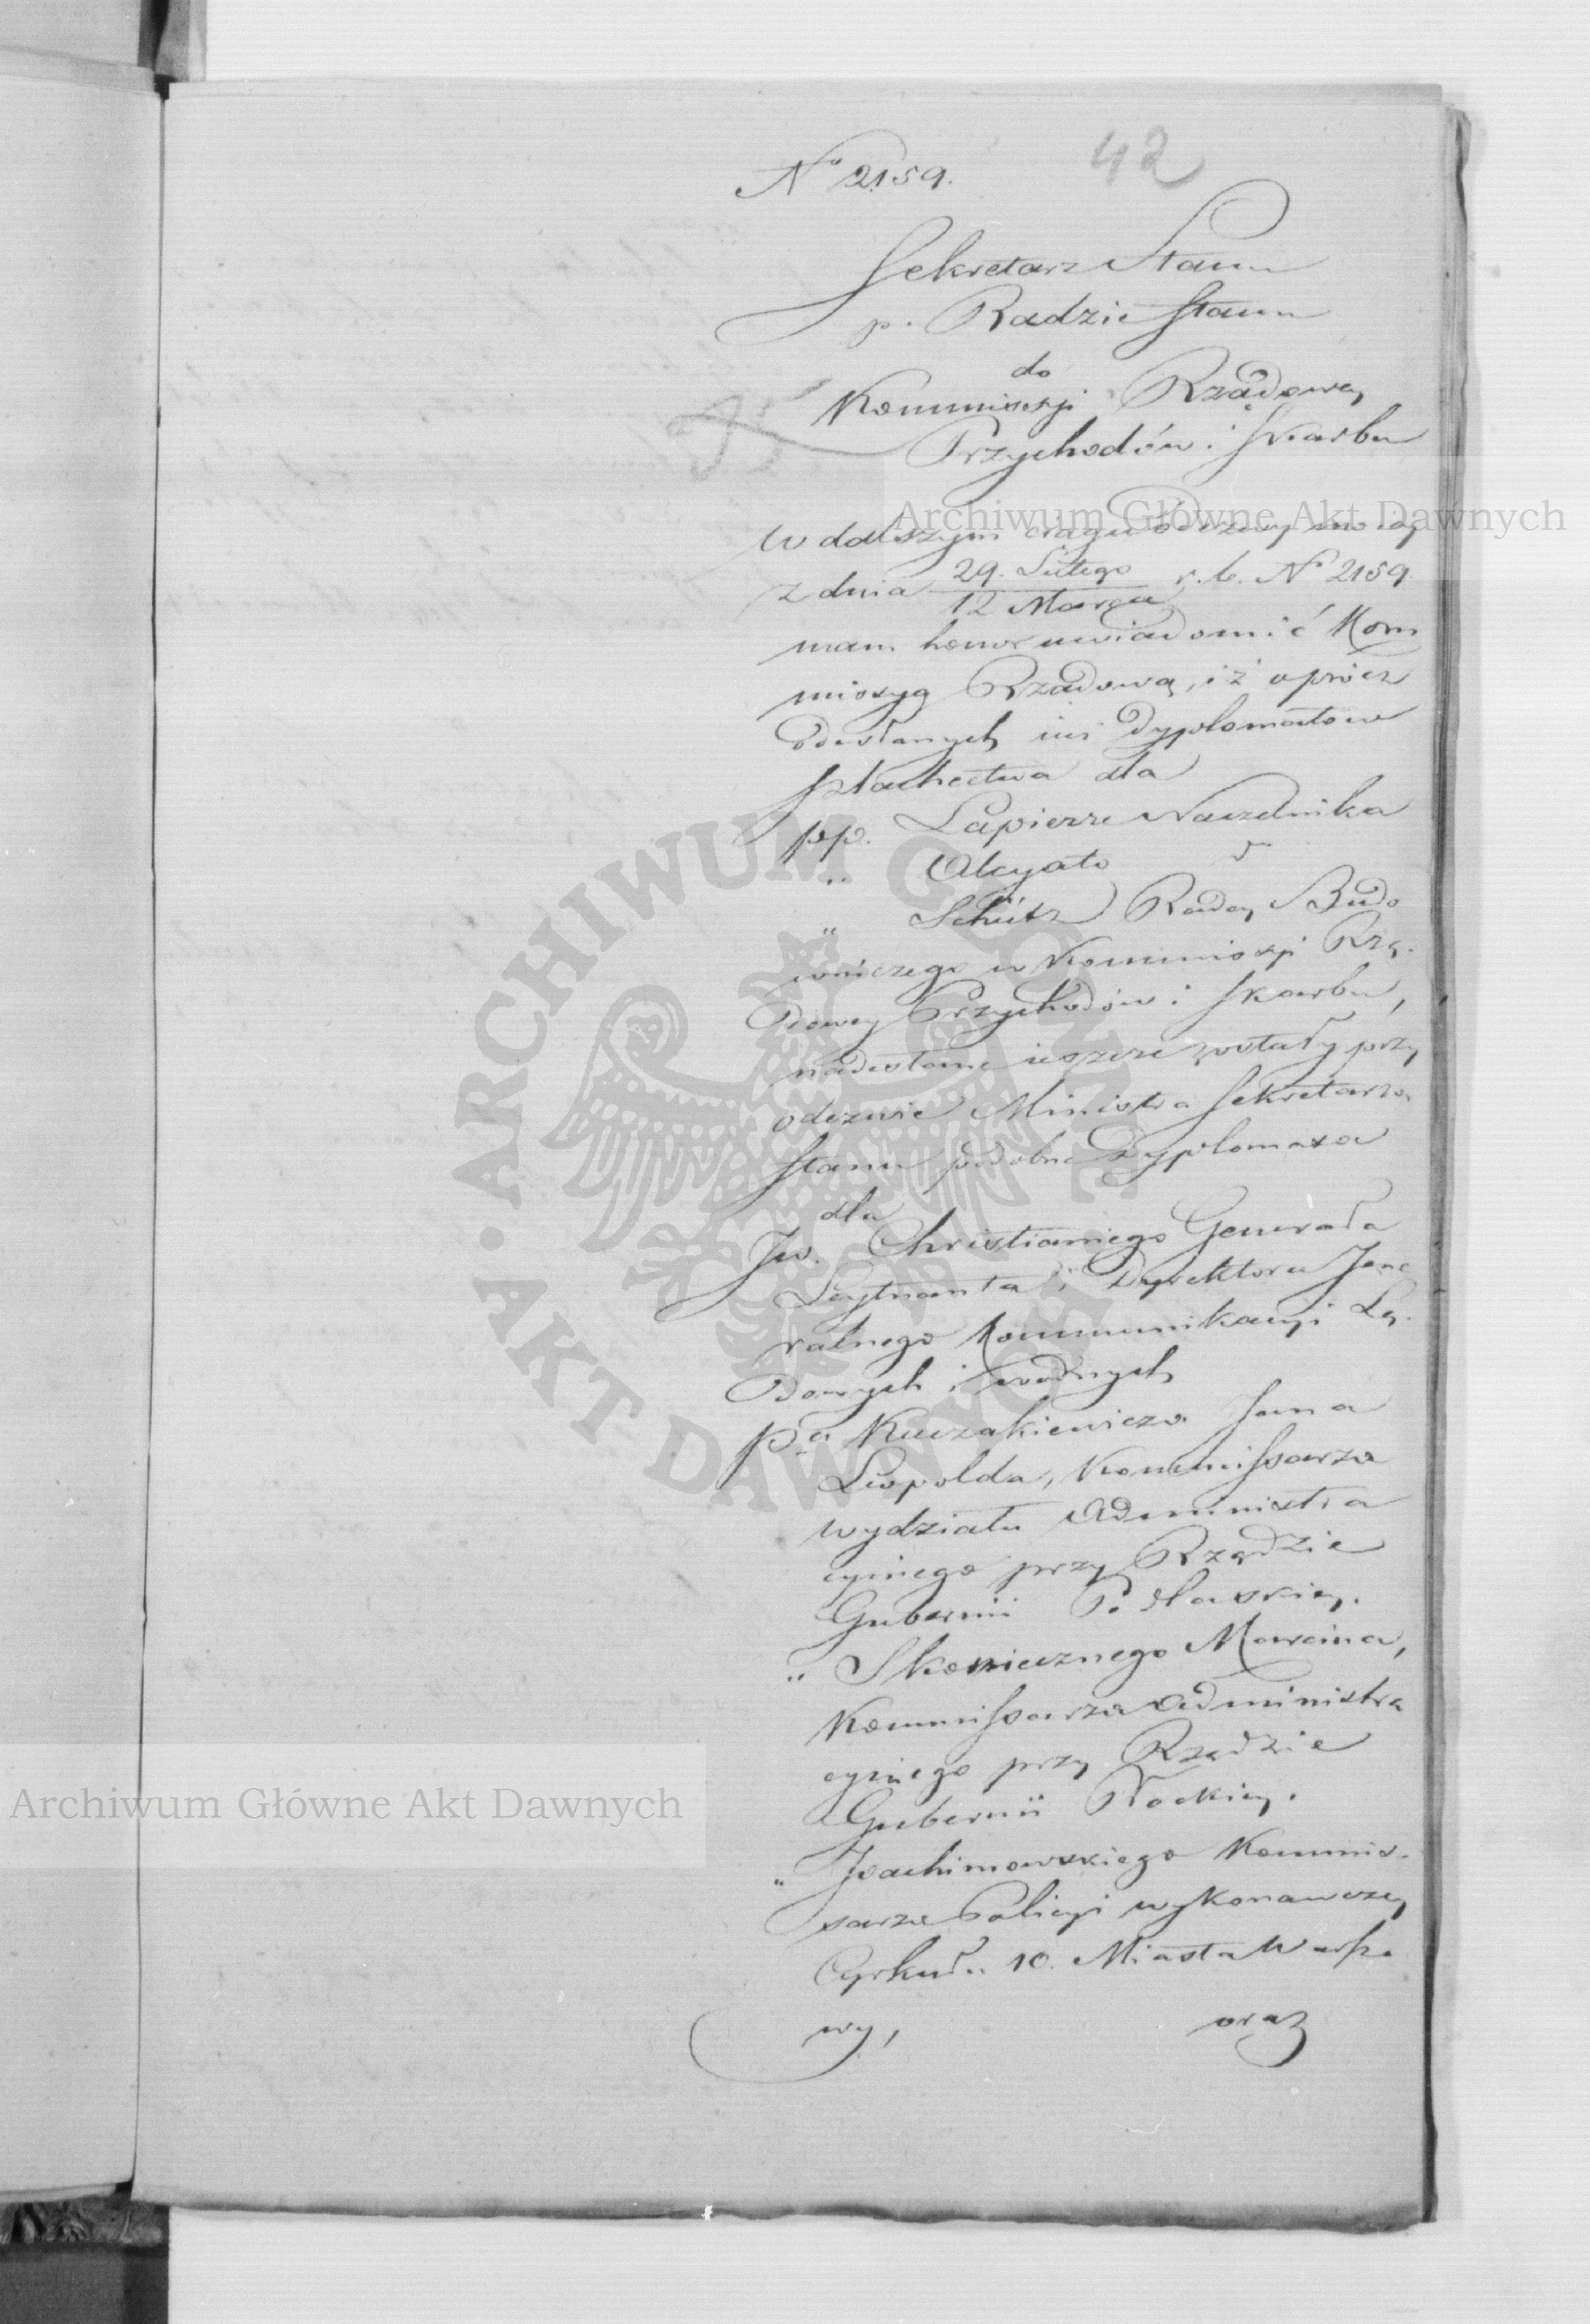 42
No 2159.
Sekretarz Stanu
p. Radzie Stanu
do
Kommissyi Rządowey
Przychodów i Skarbu
W dalszym ciągu odezwy moiey
z dnia 29. Lutego / 12 Marca r. b. No 2159
mam honor uwiadomić Kom
missyą Rządową, iż oprócz
odesłanych iuż Dyplomatow
szlachectwa dla
pp. Lapierre Naczelnika
" Alcyato
" Schütz Radcy Budo
wniczego w Kommissyi Rzą-
dowey Przychodów i Skarbu,
nadesłane ieszcze zostały przy
odezwie Ministra Sekretarza
Stanu podobne Dyplomata
dla
Jw. Christianiego Generała
Leytnanta i Dyrektora Jene
ralnego Kommunikacyi Lą-
dowych i wodnych
Pa Kuczakiewicza Jana
Leopolda, Kommissarza
wydziału Administra
cyinego przy Rządzie
Gubernii Podlaskiey.
" Skoniecznego Marcina,
Kommissarza Administra
cyinego przy Rządzie
Gubernii Płockiey.
" Joachimowskiego Kommis-
sarza Policyi wykonawczey
Cyrkułu 10. Miasta Warsza
wy, oraz
Archiwum Główne Akt Dawnych
Archiwum Główne Akt Dawnych
ARCHIWUM GŁÓWNE
AKT DAWNYCH